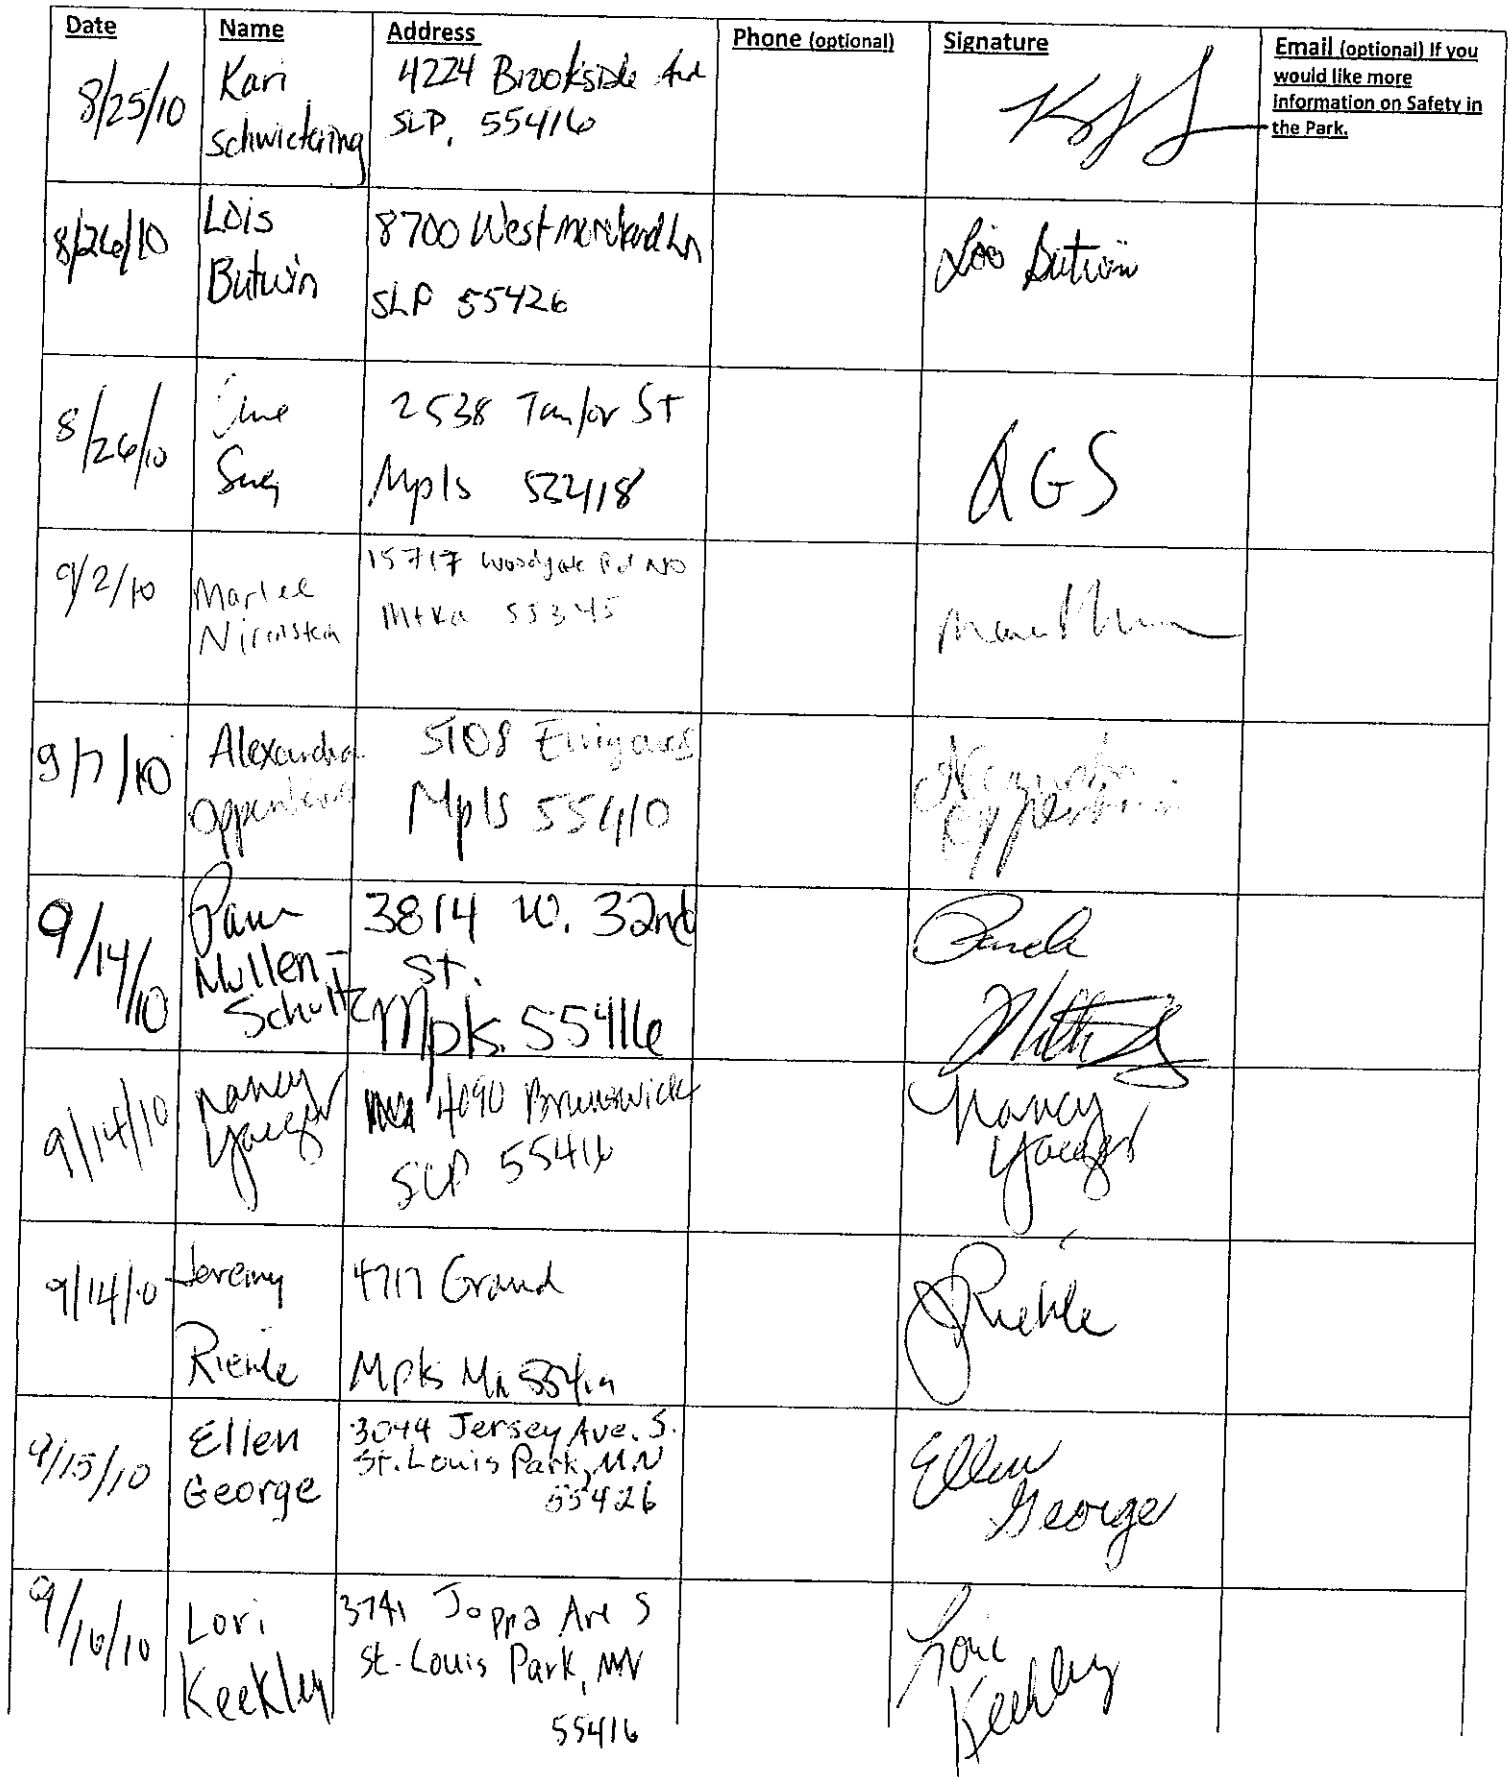 Date Name Address Phone (optional) Signature Email (optional) If you
would like more
information on Safety in
the Park.
8/25/10
Kari
Schwietering
4224 Brookside Ave
SLP, 55416
8/26/10
Lois
Butwin
8700 Westmoreland Ln
SLP 55426
Lois Butwin
8/26/10
2538 Taylor St
Mpls
AGS
9/2/10
Marlee
Nirenstein
15717 Woodgate Rd NO
Mtka 55345
9/7/10
Alexandra
5108
Mpls 55410
Alexandra
9/14/10
Pam
Mullen-
Schultz
3814 W. 32nd
St.
Mpls. 55416
Pamela
9/14/10
Nancy
Yaeger
4090 Brunswick
SLP 55416
Nancy
Yaeger
9/14/10
Jeremy
Riehle
4717 Grand
Mpls Mn 55419
JRiehle
9/15/10
Ellen
George
3044 Jersey Ave. S.
St. Louis Park, MN
55426
Ellen
George
9/16/10
Lori
Keekley
3741 Joppa Ave S
St. Louis Park, MN
55416
Lori
Keekley